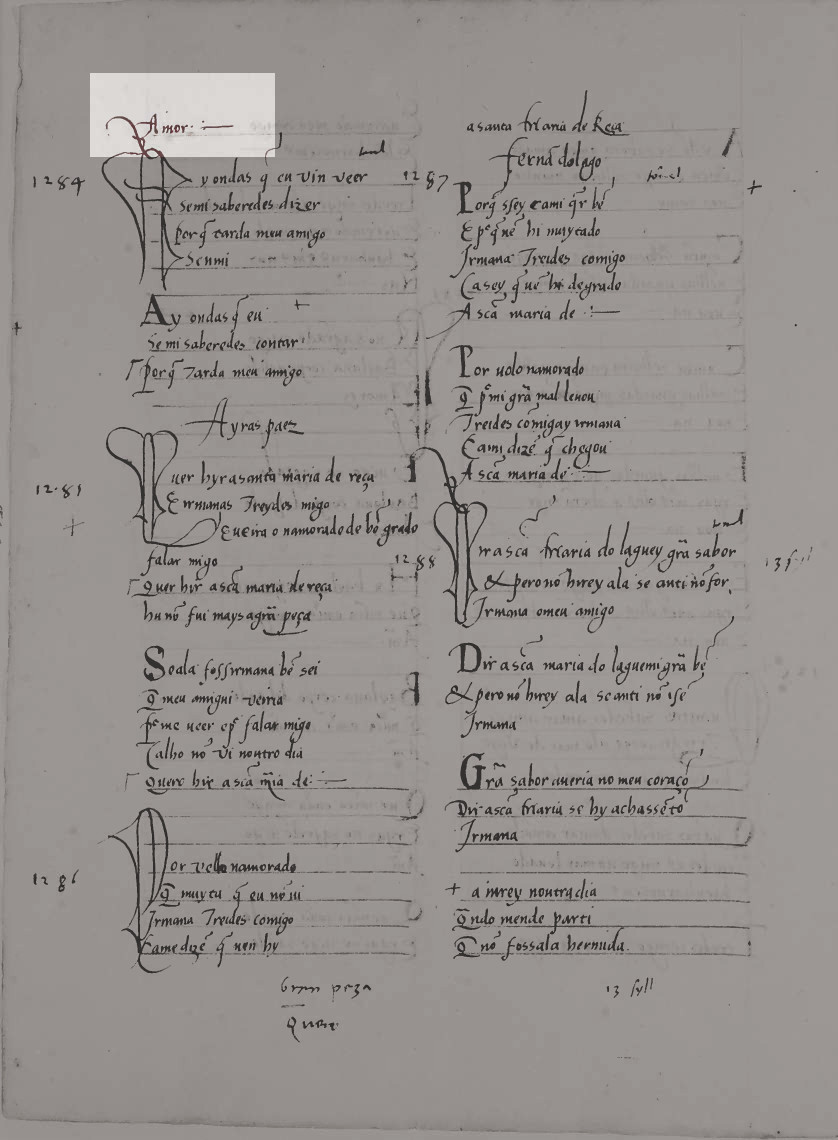 Amor
1284
Ay ondas q̄ eu vin veer
Se mi saberedes dizer
porq̄ tarda meu amigo
Sen mi
Ay ondas q̄ eu
Se mi saberedes contar
porq̄ tarda meu amigo
Ayras paez
Quer hyr a santa maria de reça
E irmanas Treydes migo
E ueira o namorado de bō grado
falar migo
Quer hir a scā maria de reça
hu nō fui mays a grā peça
Se ala foss irmana bē sei
q̄ meu amigu veiria
por me ueer e por falar migo
Ca lho nō vi noutro dia
Quero hir a scā mīa de
1286
Por vello namorado
q̄ muyto q̄ eu nō ui
Irmana Treides comigo
Ca me dizē q̄ uen hy
gran peza
Quer
a santa Maria de Reça
fernā dolago
1287
Porq̄ ssey ca mi q̄r bē
E porq̄ uē hi muy cado
Irmana Treides comigo
Ca sey q̄ uē hi de grado
A scā maria de
Por uelo namorado
q̄ por mi grā mal leuou
Treides comigay irmana
Ca mi dizē q̄ chegou
A scā maria de
1288
Dir a scā Maria do lag uey grā sabor
& pero nō hirey ala se anti nō for
Irmana o meu amigo
Dir a scā maria do lag uemi grā bē
& pero nō hirey ala se anti nō ue
Irmana
Grā sabor aueria no meu coraçō
Dir a scā Maria se hy achassetō
Irmana
a iurey noutra dia
q̄ndo mende parti
q̄ nō fossala hermida
13 syll